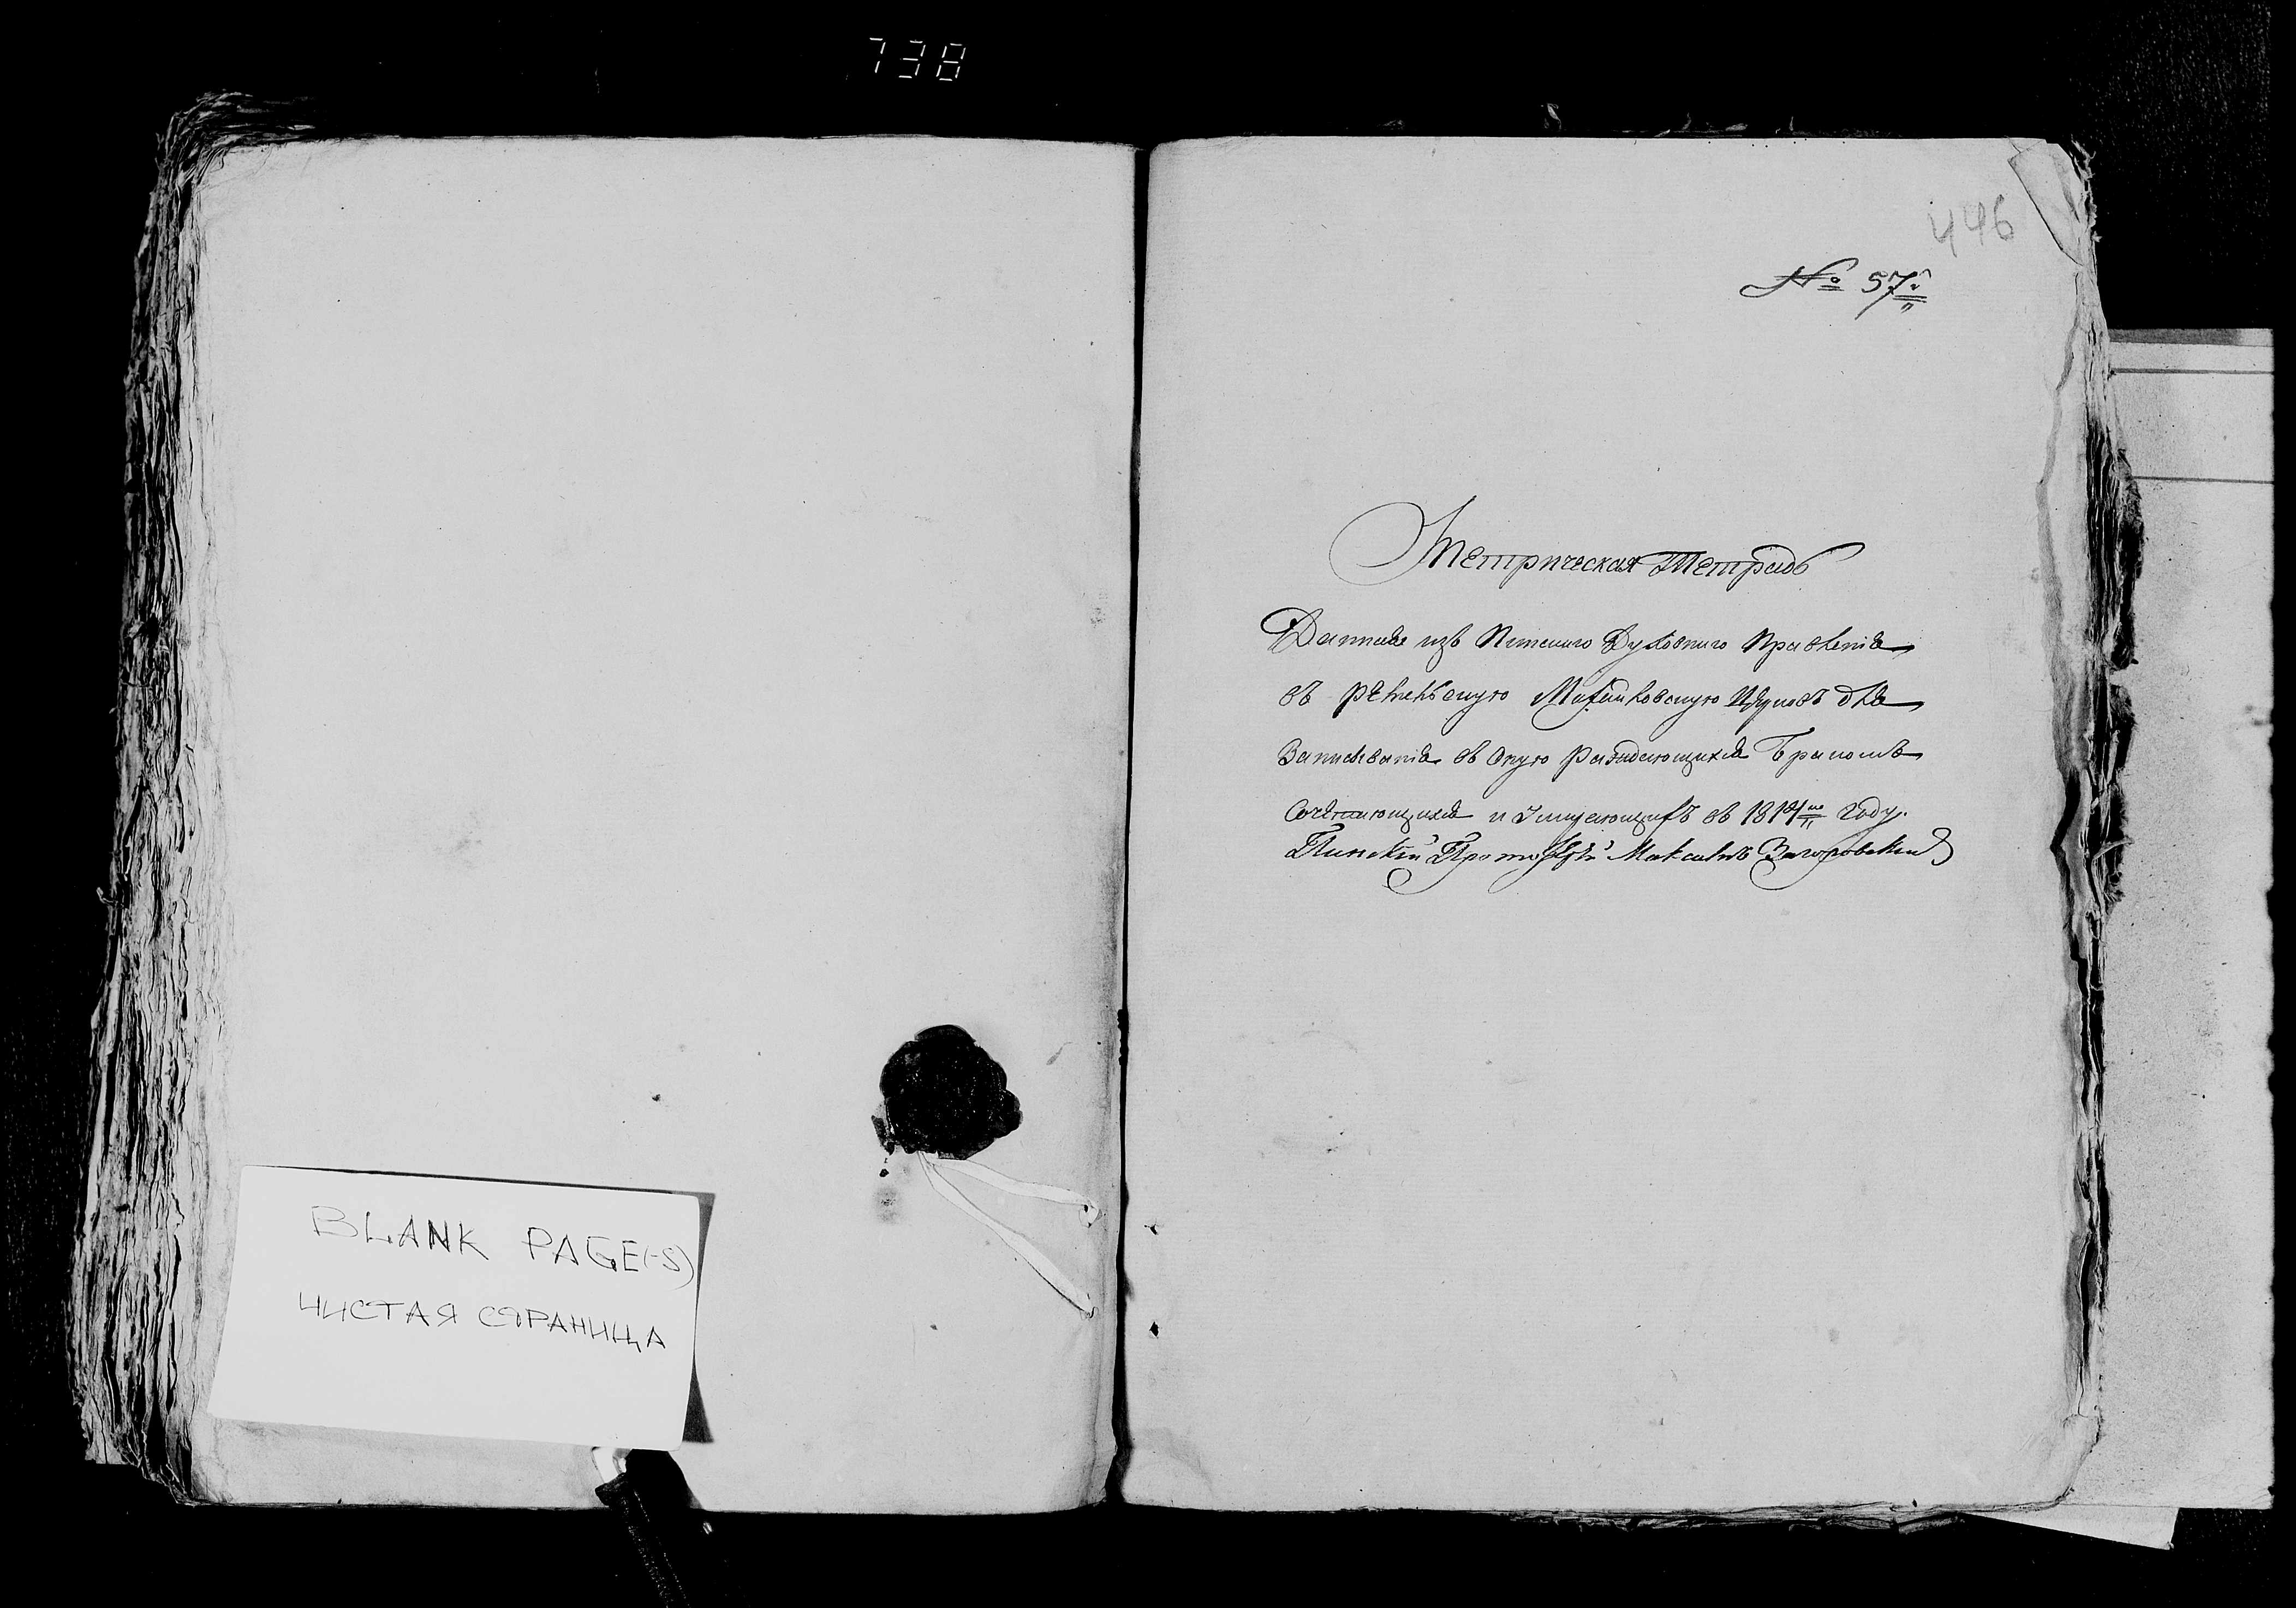 738
446
№ 57й
Метрическая тетрадь
Данная изъ Пинскаго Духовнаго Правленія
въ церковь для
Записыванія въ оную Раждающихся Бракомъ
Сочетающихся и Умирающихъ въ 1814мъ году.
Пинскій Протоіерей Максимъ Загоровскій
BLANK PAGE(-S)
ЧИСТАЯ СТРАНИЦА